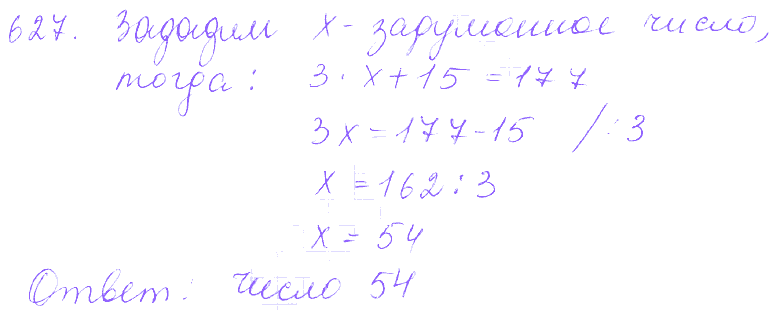 627. Зададим x - задуманное число,
тогда: 3 · x + 15 = 177
3x = 177 - 15 / : 3
x = 162 : 3
x = 54
Ответ: число 54